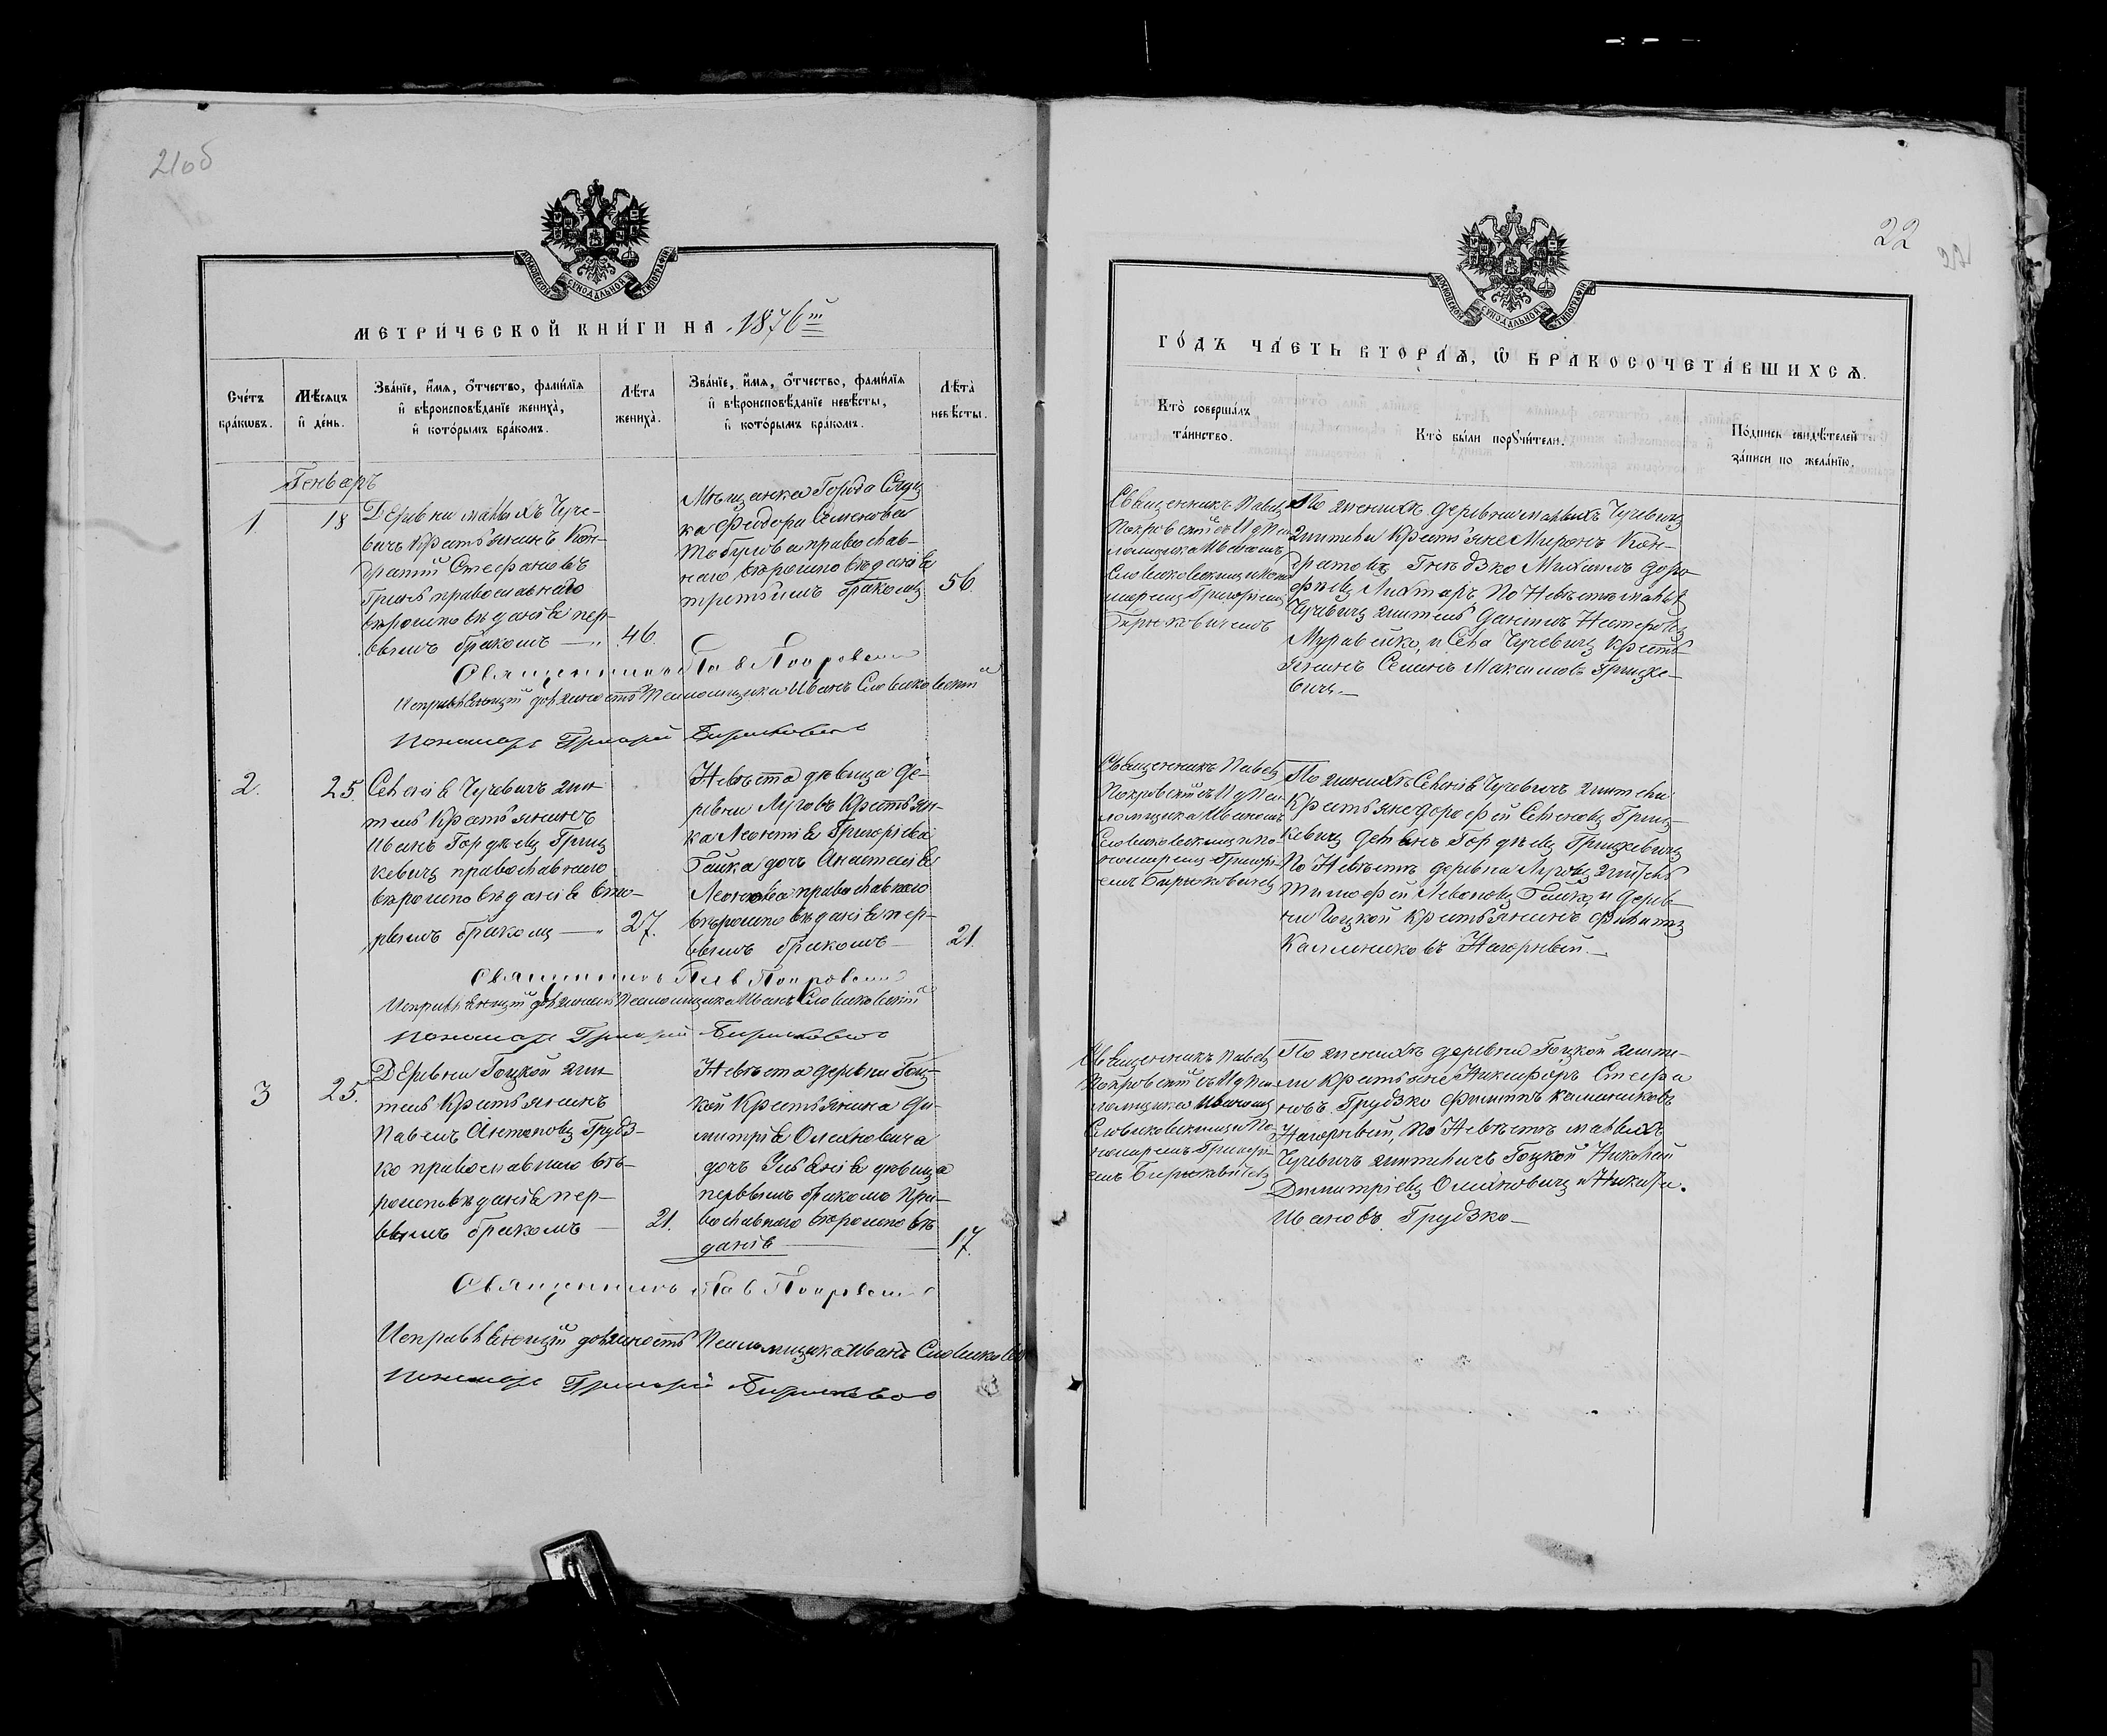 21об
МОСКОВСКОЙ СѴНОДАЛЬНОЙ ТИПОГРАФІИ
МЕТРИ́ЧЕСКОЙ КНИ́ГИ НА 1876й
Сче́тъ бра́кѡвъ.
Мѣ́сяцъ и҆ де́нь.
Зва́нїе, и҆́мя, ѻ҆́тчество, фами́лїя
и҆ вѣроисповѣ́данїе жениха̀,
и҆ кото́рымъ бра́комъ.
Лѣ́та жениха̀.
Зва́нїе, и҆́мя, ѻ҆́тчество, фами́лїя
и҆ вѣроисповѣ́данїе невѣ́сты,
и҆ кото́рымъ бра́комъ.
Лѣ́та невѣ́сты.
Генварь
1.
18
Деревни малыхъ Чуче-
вичъ Крестьянинъ Кон-
дратій Стефановъ
Гринь православнаго
вѣроисповѣданія пер-
вымъ бракомъ —
46.
Мѣщанка Города Слуц
ка Феодора Семенова
православ-
наго вѣроисповѣданія
третьимъ бракомъ
56.
Священникъ Пав Покровскій
Исправляющій должность Псаломщика Иванъ
Пономарь Григорій Бирюковичъ
2.
25.
Селенія Чучевичъ жи-
тель Крестьянинъ
Иванъ Гордѣевъ Гриц
кевичъ православнаго
вѣроисповѣданія вто-
рымъ бракомъ —
27.
Невѣста дѣвица де-
ревни Луговъ Крестьян-
ка Леонтія Григорьева
Гайка дочь Анастасія
Леонова православнаго
вѣроисповѣданія пер-
вымъ бракомъ —
21.
Священникъ Пав Покровскій
Исправляющій должность Псаломщика Иванъ
Пономарь Григорій Бирюковичъ
3
25.
Деревни Гоцкой жи-
тель Крестьянинъ
Павелъ Антоновъ Грудз-
ко православнаго вѣ-
роисповѣданія пер-
вымъ бракомъ —
21.
Невѣста деревни Гоц-
кой Крестьянина Ди-
митрія Олихновича
дочь Ульянія дѣвица
первымъ бракомъ Пра-
вославнаго вѣроисповѣ
данія —
17.
Священникъ Пав Покровскій
Исправляющій должность Псаломщика Иванъ
Пономарь Григорій Бирюковичъ
22
МОСКОВСКОЙ СѴНОДАЛЬНОЙ ТИПОГРАФІИ
ГО́ДЪ ЧА́СТЬ ВТОРА́Ѧ, Ѡ҆ БРАКОСОЧЕТА́ВШИХСѦ.
Кто̀ соверша́лъ
та́инство.
Кто̀ бы́ли порꙋчи́тели.
По́дпись свидѣ́телей
за́писи по жела́нїю.
Священникъ Павелъ
Покровскій съ И д Пса
ломщика Иваномъ
и Поно
маремъ Григоріемъ
Бирюковичемъ
По женихѣ деревни малыхъ Чучевичъ
жители Крестьяне Миронъ Кон-
дратовъ Михаилъ Доро
феевъ Лихтаръ По Невѣстѣ малыхъ
Чучевичъ житель Даніилъ
Муравейко, и Села Чучевичъ Кресть
янинъ Семенъ Максимовъ Грицке-
вичъ —
Священникъ Павелъ
Покровскій съ И д Пса
ломщика Иваномъ
и По-
номаремъ Григорі-
емъ Бирюковичемъ
По женихѣ Селенія Чучевичъ жители
Крестьяне Дорофей Семеновъ Гриц-
кевичъ Демьянъ Гордѣевъ Грицкевичъ
По Невѣстѣ деревни Луговъ житель
Тимофей Левоновъ Гайко, и дерев-
ни Гоцкой Крестьянинъ Филиппъ
Калиниковъ Нагорный —
Священникъ Павелъ
Покровскій съ И д Пса
ломщика Иваномъ
и По
номаремъ Григорі-
емъ Бирюковичемъ
По женихѣ деревни Гоцкой жите-
ли Крестьяне Никифоръ Стефа
новъ Грудзко Филиппъ Калиниковъ
Нагорный, По Невѣстѣ малыхъ
Чучевичъ жителисъ Гоцкой Николай
Димитріевъ Олихновичъ и
Ивановъ Грудзко —